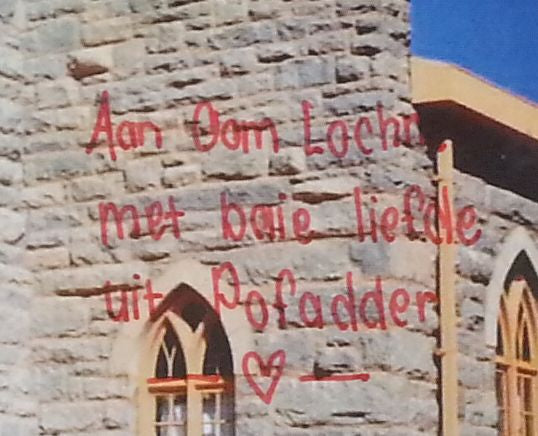 Aan Oom Lochn.
met baie liefde
uit Pofadder